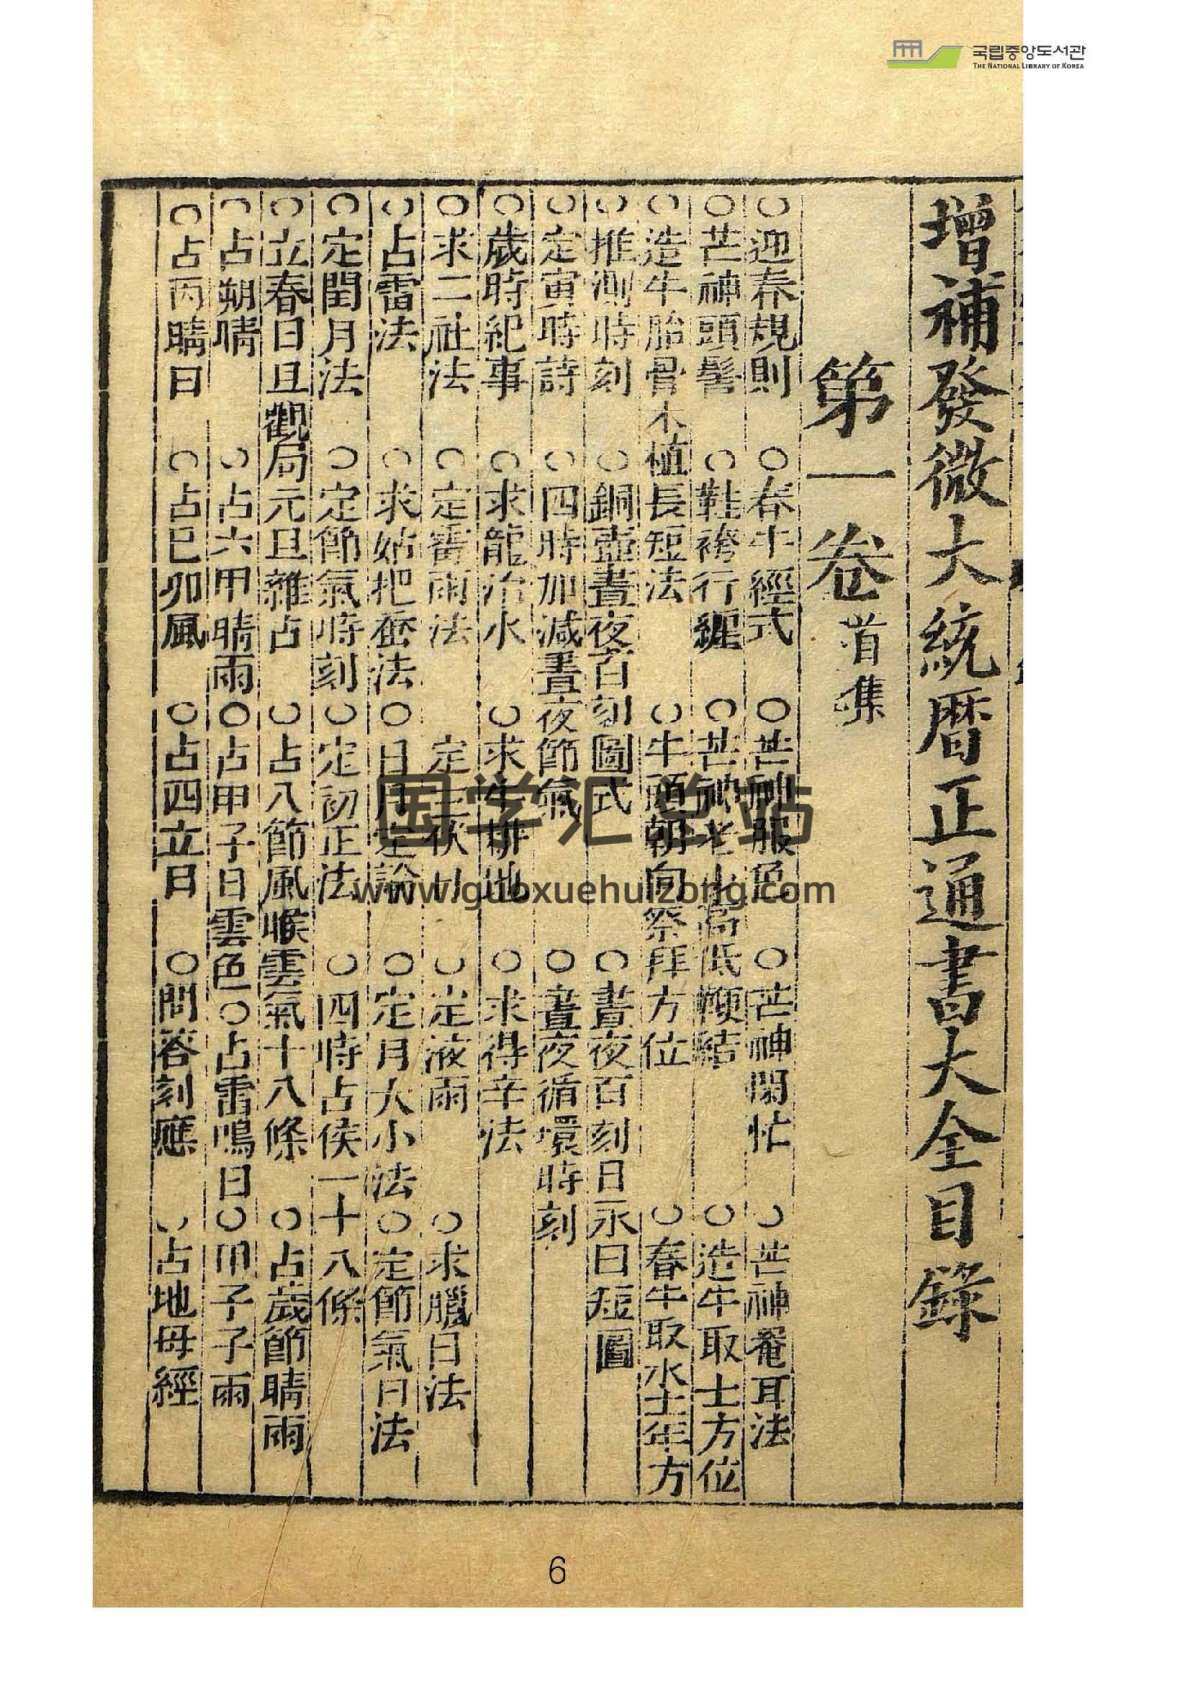 국립중앙도서관
THE NATIONAL LIBRARY OF KOREA
增補發微大統曆正通書大全目錄
第一卷 首集
○迎春規則 ○春牛經式 ○芒神服色 ○芒神閑忙 ○芒神罨耳法
○芒神頭髻 ○鞋袴行纏 ○芒神老少高低鞭結 ○造牛取土方位
○造牛胎骨木植長短法 ○牛頭朝向祭拜方位 ○春牛取水土年方
○推測時刻 ○銅壺晝夜百刻圖式 ○晝夜百刻日永日短圖
○定寅時詩 ○四時加減晝夜節氣 ○晝夜循環時刻
○歲時紀事 ○求龍治水 ○求牛耕地 ○求得辛法
○求二社法 ○定霉雨法 定三伏日 ○定液雨 ○求臘日法
○占雷法 ○求姑把蚕法 ○日月定論 ○定月大小法 ○定節氣日法
○定閏月法 ○定節氣時刻 ○定初正法 ○四時占侯一十八條
○立春日且觀局元旦雜占 ○占八節風候雲氣十八條 ○占歲節晴雨
○占朔晴 ○占六甲晴雨 ○占甲子日雲色 ○占雷鳴日 ○甲子子雨
○占丙晴日 ○占巳卯風 ○占四立日 ○問答刻應 ○占地母經
国学汇总站
www.guoxuehuizong.com
6